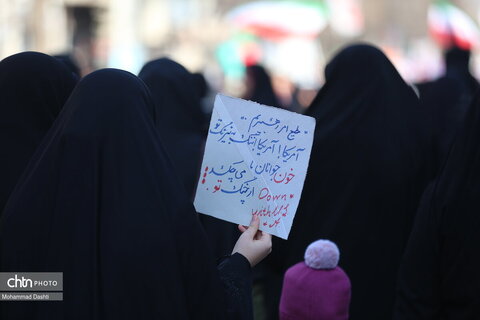 مطیع امر رهبریم ...
آمریکا! آمریکا! ننگ به نیرنگ تو
خون جوانان ما می‌چکد
از چنگ تو
Down
with U.S
chtn PHOTO
Mohammad Dashti